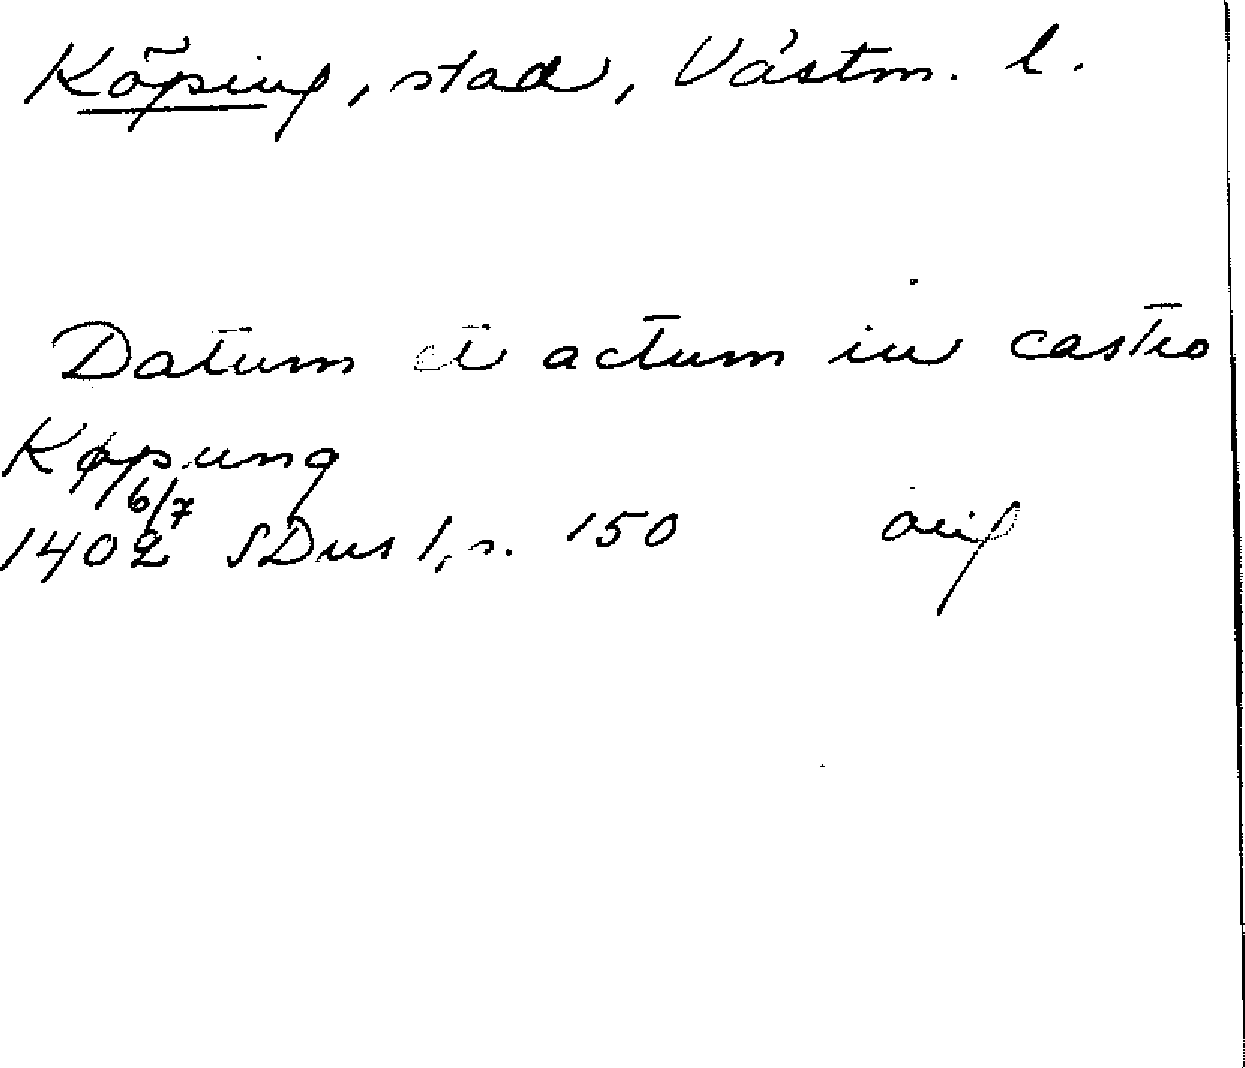 Köping, stad, Västm. l.
Datum et actum in castro
Køpung
1402 6/7 SDns 1, s. 150 orig